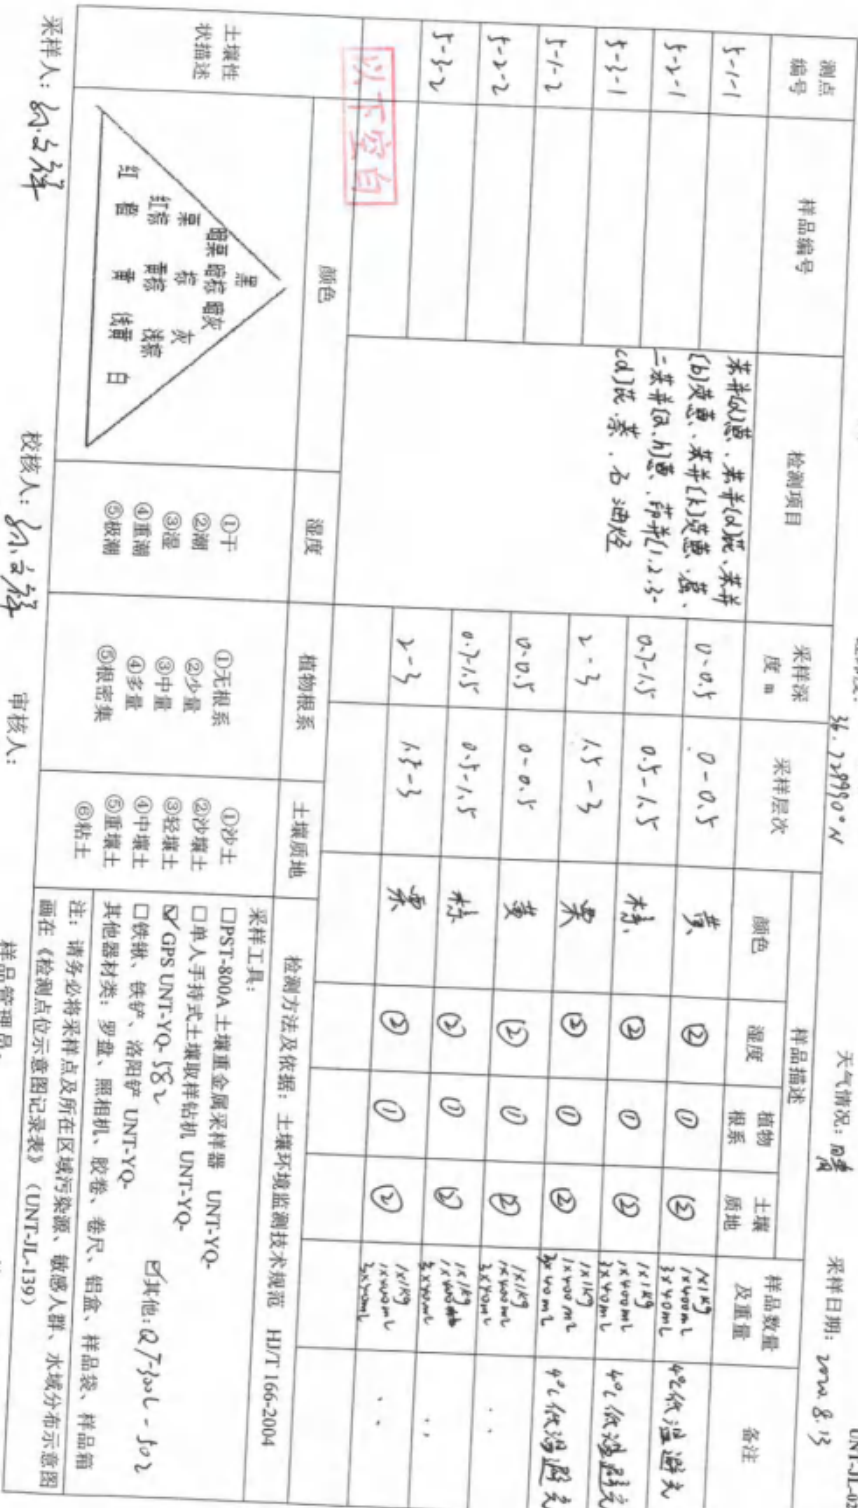 UNT-JL-0
36.728990°N
天气情况：
采样日期： 2020.8.13
测点编号 样品编号 检测项目 采样深度 m 采样层次 样品描述 样品数量及重量 备注
颜色 湿度 植物根系 土壤质地
苯并[a]蒽、苯并[a]芘、苯并
[b]荧蒽、苯并[k]荧蒽、䓛、
二苯并[a,h]蒽、茚并[1,2,3-
cd]芘、萘、石油烃
5-1-1 0-0.5 0-0.5 黄 ② ① ② 1x1kg 1x400mL 3x40mL 4℃低温避光
5-2-1 0.7-1.5 0.5-1.5 棕 ② ① ② 1x1kg 1x400mL 3x40mL 4℃低温避光
5-3-1 2-3 1.5-3 栗 ② ① ② 1x1kg 1x400mL 3x40mL 4℃低温避光
5-1-2 0-0.5 0-0.5 黄 ② ① ② 1x1kg 1x400mL 3x40mL ..
5-2-2 0.7-1.5 0.5-1.5 棕 ② ① ② 1x1kg 3x40mL ..
5-3-2 2-3 1.5-3 栗 ② ① ② 1x1kg 1x400mL 3x40mL ..
以下空白
土壤性状描述
颜色 湿度 植物根系 土壤质地
黑
暗栗 暗棕 暗灰
栗 棕 灰
红棕 黄棕 浅棕
红 橙 黄 浅黄 白
①干
②潮
③湿
④重潮
⑤极潮
①无根系
②少量
③中量
④多量
⑤根密集
①沙土
②沙壤土
③轻壤土
④中壤土
⑤重壤土
⑥粘土
检测方法及依据：土壤环境监测技术规范 HJ/T 166-2004
采样工具：
□PST-800A 土壤重金属采样器 UNT-YQ-
□单人手持式土壤取样钻机 UNT-YQ-
☑GPS UNT-YQ-582
□铁锹、铁铲、洛阳铲 UNT-YQ- ☑其他：QT-300L-502
其他器材类：罗盘、照相机、胶卷、卷尺、铝盒、样品袋、样品箱
注：请务必将采样点及所在区域污染源、敏感人群、水域分布示意图
画在《检测点位示意图记录表》（UNT-JL-139）
采样人： 校核人： 审核人： 样品管理员：